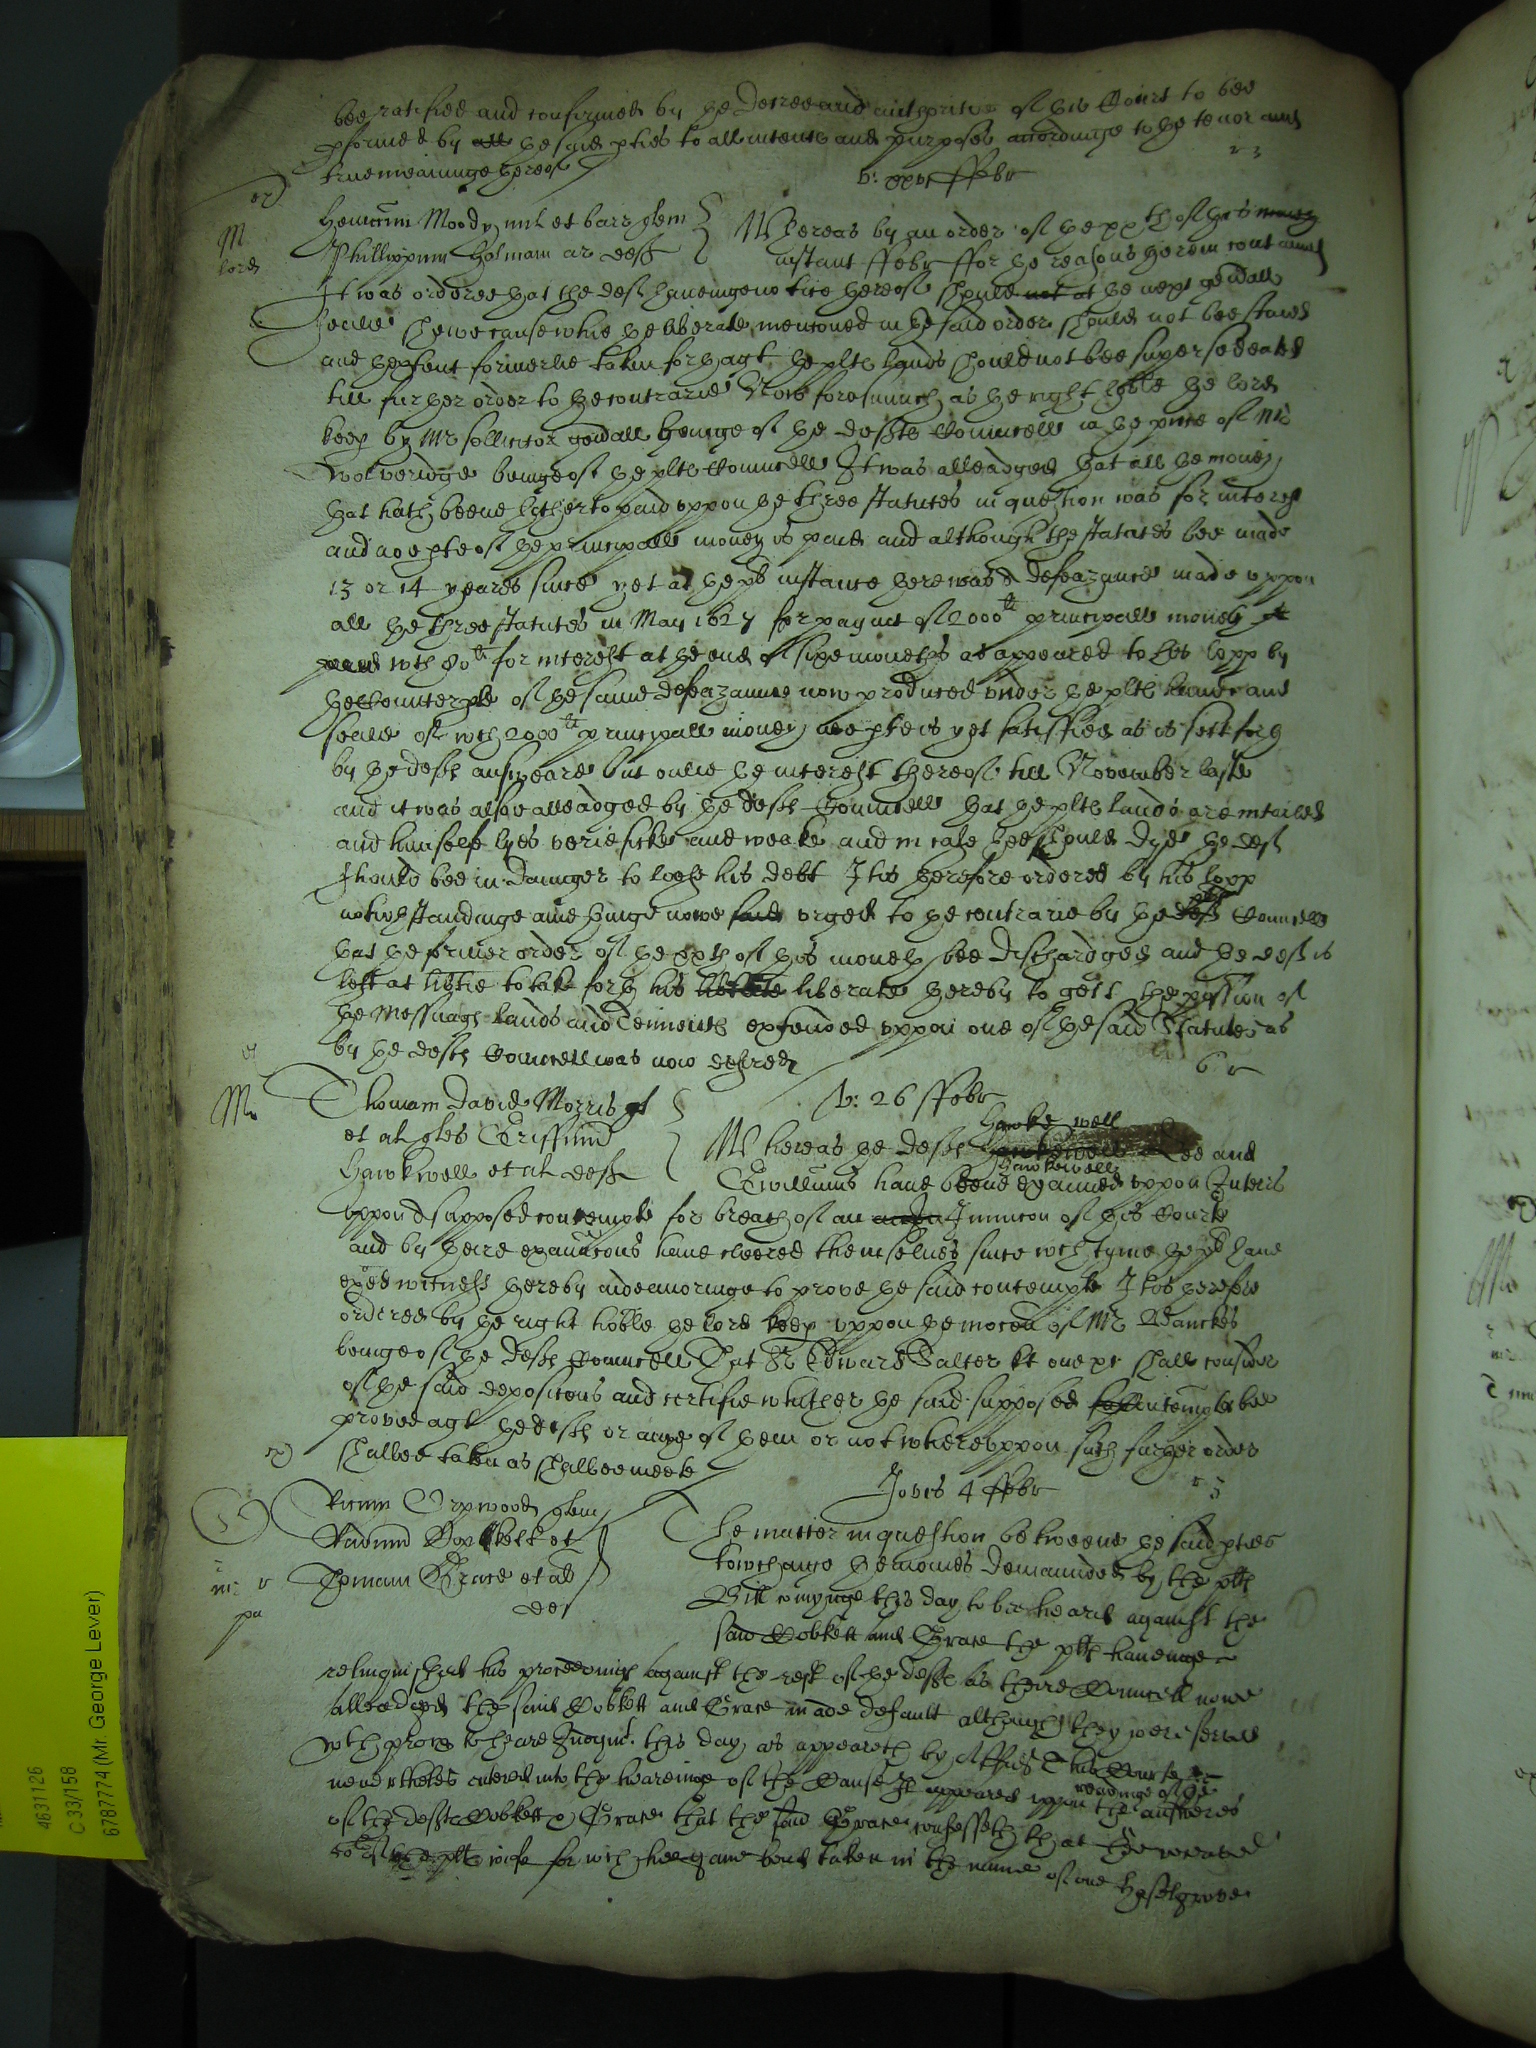 bee ratified and confirmed by the Decree and authoritie of this Court to bee
pformed by all the said pties to all intents and purposes accordinge to the tenor and
true meaninge thereof
v: ffebr
Henricum Moody mil et barr
Phillippum Holman ar deft
Whereas by an order of the xxth of this money
instant ffebr ffor the reasons therein contained
It was ordered that the deft haueinge notice thereof should not at the next genall
Seale shewe cause whie the liberate mencioned in the said order should not bee staied
and thextent formerlie taken forth agt the plts lands should not bee superseeded
till further order to the contrarie Now forasmuch as the right hoble the lord
keep by Mr sollicitor genall beinge of the defts Councell in the pnce of Mr
Wolveridge beinge of the plts Councell It was alleadged that all the money
that hath beene hitherto paid vppon the three statutes in question was for interest
and noe pte of the principall money is paid and although the statutes bee made
13 or 14 yeares since yet at the plts instance there was a defeazance made vppon
all the three statutes in May 1627 for paymt of 2000li principall money
wth 80li for interest at the end of sixe moneths as appeared to his lopp by
the Counterpte of the same defeazannce now produced vnder the plts hand and
seale of wch 2000li principall money noe pte is yet satisffied as is sett forth
by the defts answeare but onlie the interest thereof till November laste
and it was alsoe alleadged by the defts Councell that the plts lands are intailed
and himself lyes verie sicke and weake and in case hee should dye the deft
should bee in daunger to loose his debt It is therefore ordered by his lopp
notwthstandinge anie thinge nowe said vrged to the contrarie by the plts Councell
that the former order of the xxth of this moneth bee dischardged and the deft is
left at libtie to take forth his liberate thereby to gett the possion of
the messuage lands and tenemts extended vppon one of the said Statutes as
by the defts Councell was now desired
v: 26 ffebr
Thomam David Morris
et al Griffinud
Hawkwell et al deft
Hawkewell
Whereas the defts Hawkewell Lee and
Hawkewell
Gwilliams haue beene examined vppon Interr
vppon a supposed contempte for breach of an Iniuncon of this Courte
and by theire examinacons haue cleered themselues since wch tyme the plt haue
exed witness thereby indeavoringe to prove the said contempte It is therefore
ordered by the right hoble the lord keep vppon the mocon of Mr Banckes
beinge of the defts Councell That Sr Edward Salter kt shall consider
of the said deposicons and certifie whether the said supposed contempte bee
proved agt the defts or anie of them or not wherevppon such further order
shalbee taken as shalbee meete
Jovis 4 ffebr
Orpwood
Dobkett et
Thomam Grace et al
def
The matter in question betweene the said pties
towchinge the monies demaunded by the plts
Bill comynge this day to bee heard against the
said Dobkett and Grace the plt haueinge
relinquished his proceedings against the rest of the defts as theire Councell nowe
alleadged the said Dobkett and Grace made default although they were served
wth proces to heare Iudgmt this day as appeareth by Affidt This Court
neverthelesse entered into the heareinge of the Cause It appeared vppon the readinge of the answeres
of the defts Dobkett & Grace that the said Grace confesseth that he receaved
of the plts wife for wch hee gaue bond taken in the name of one Heselgrove
4631126
C 33/158
6787774 (Mr. George Lever)